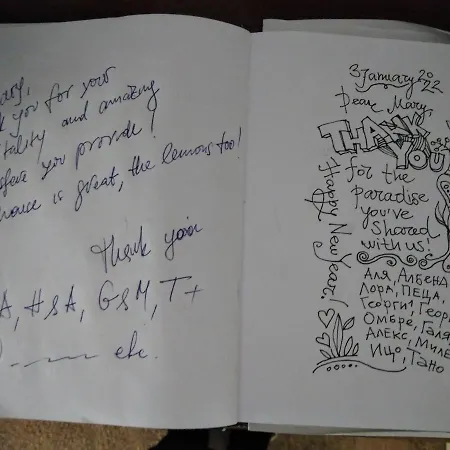 you for your
and amazing
you provide!
is great, the lemons too!
Thank you
A, H&A, GSM, T+
etc.
3 January 2022
Dear Mary,
THANK
YOU
for the
paradise
you've
shared
with us!
Happy New Year!
Аля, Албена
Лора, ПЕЦА,
Георги, Геор
Омбре, Галя
Алекс, Миле
Ицо, Тано